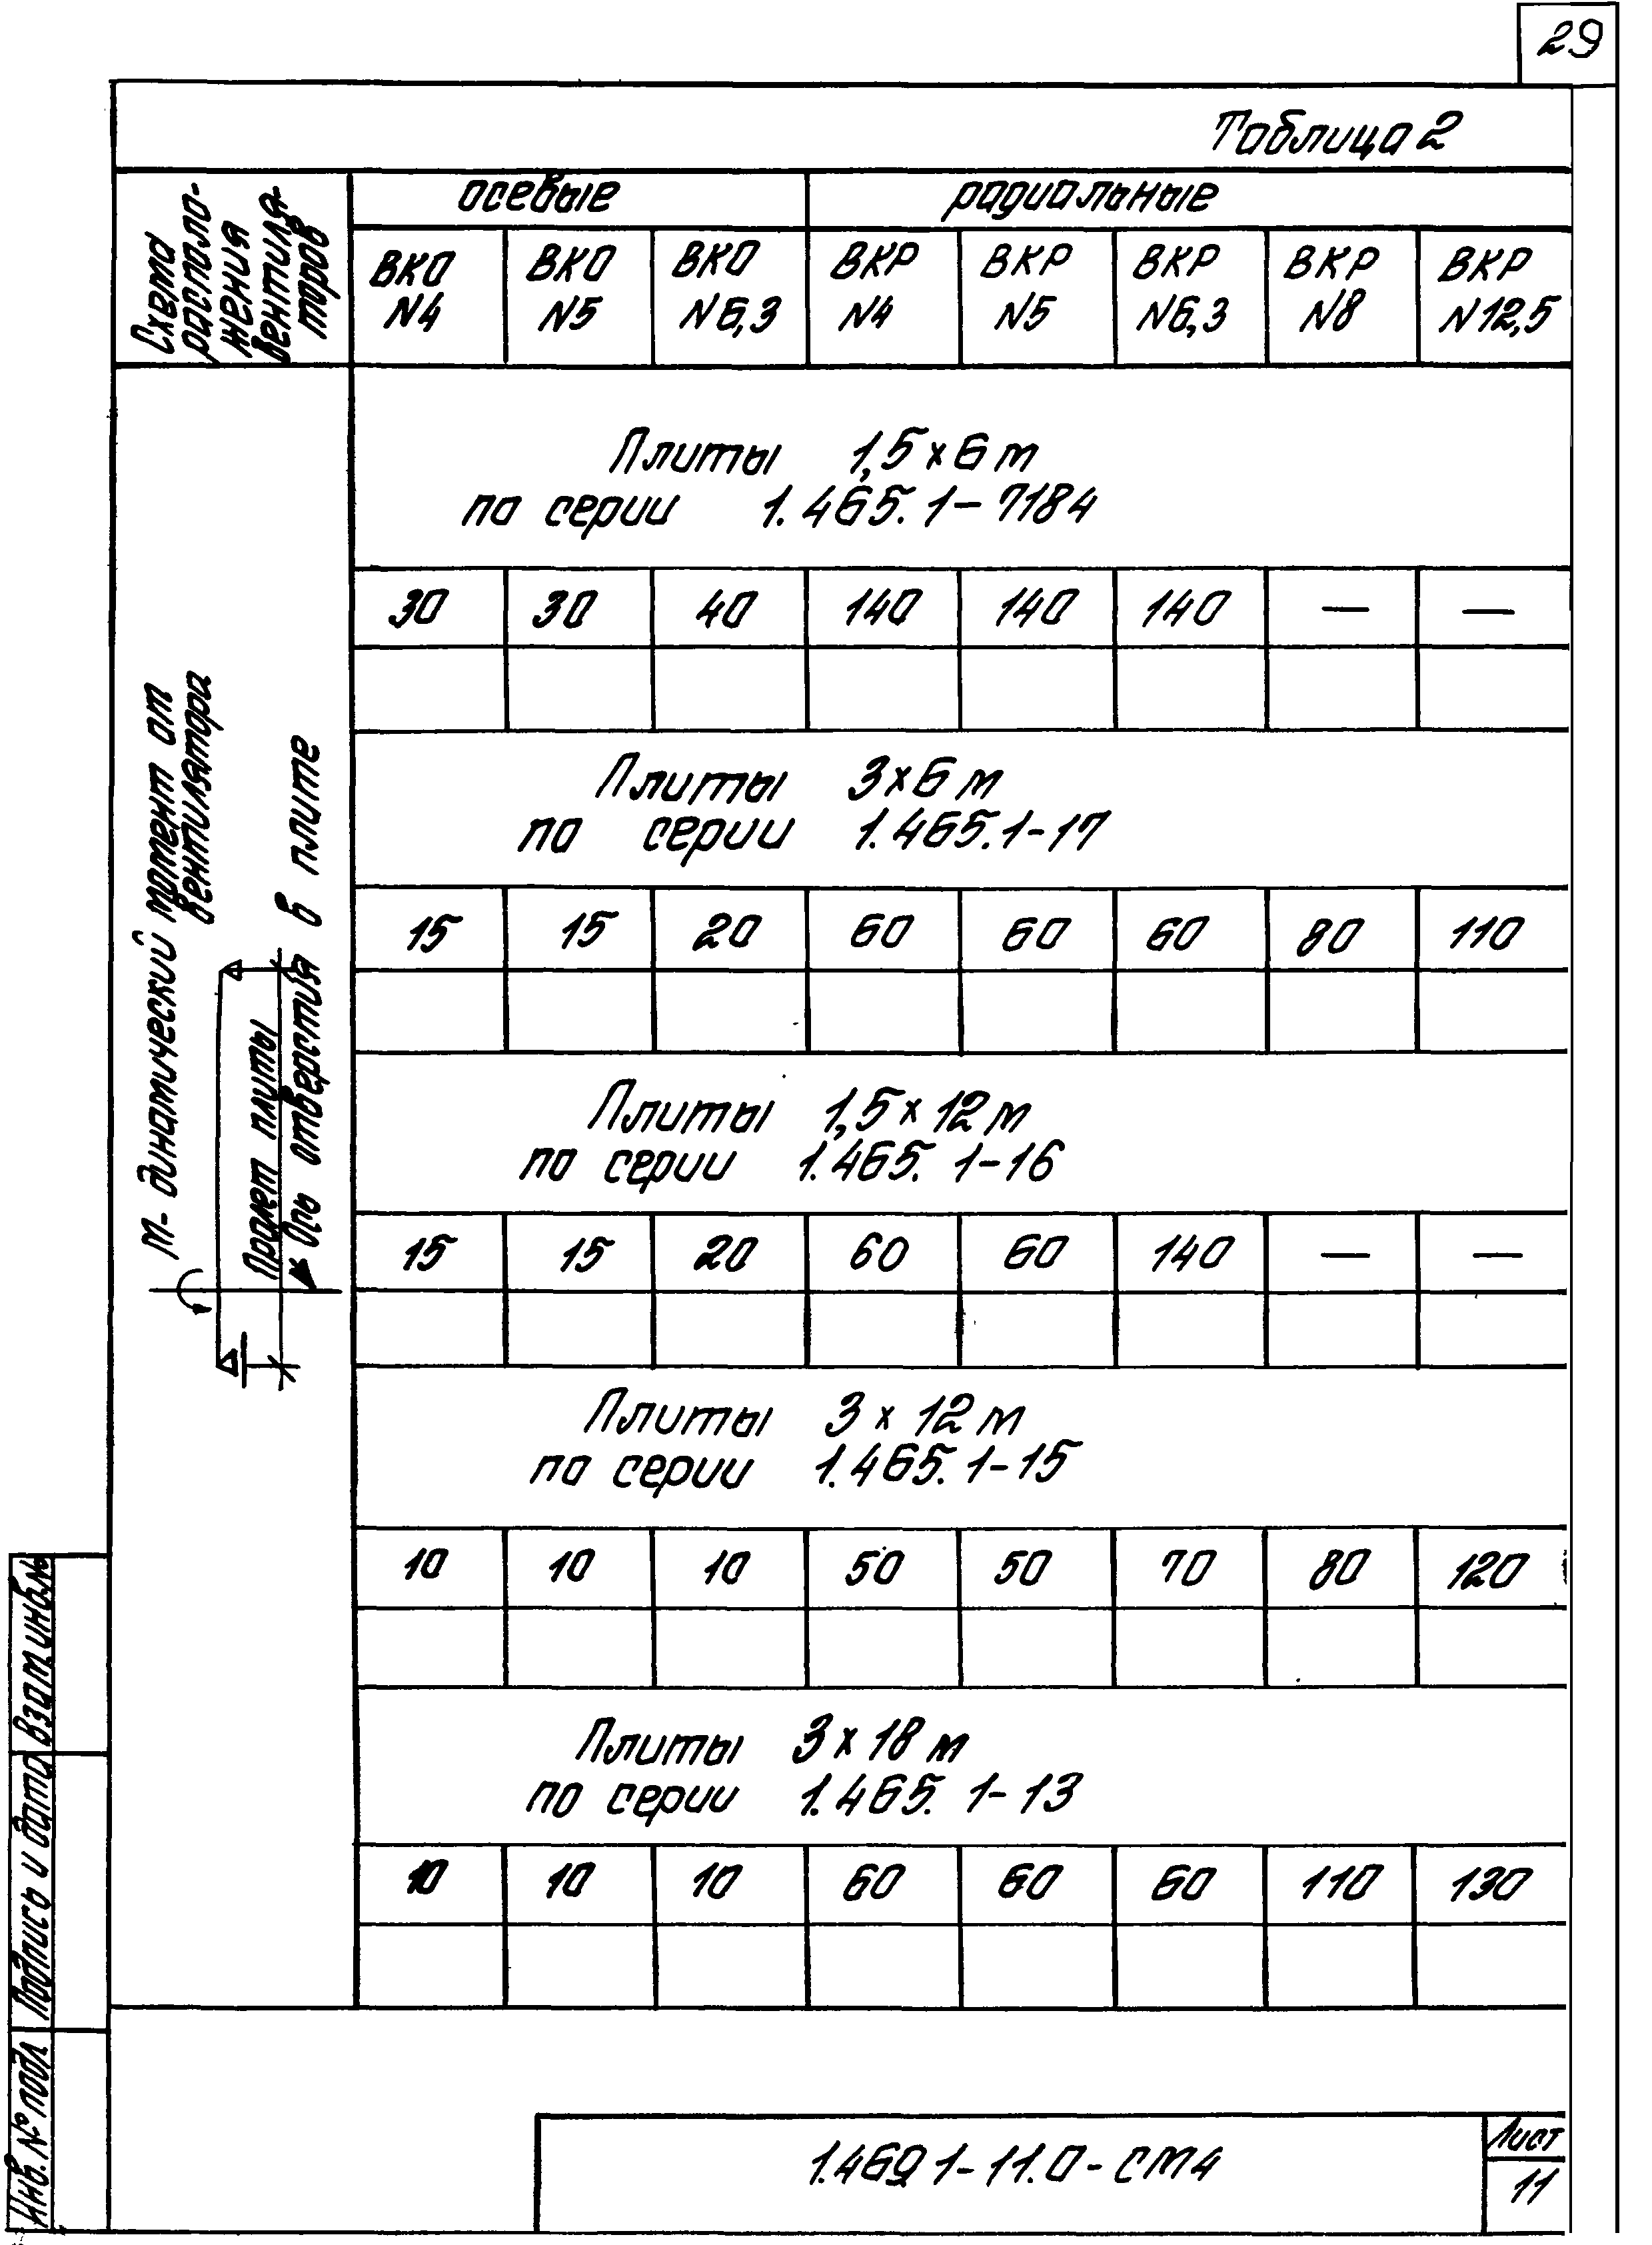 29
Таблица 2
Схема
располо-
жения
вентиля-
торов
осевые
радиальные
ВКО
N4
ВКО
N5
ВКО
N6,3
ВКР
N4
ВКР
N5
ВКР
N6,3
ВКР
N8
ВКР
N12,5
М- динамический момент от
вентилятора
Пролет плиты
Ось отверстия в плите
Плиты 1,5 х 6 м
по серии 1.465.1-7/84
30 30 40 140 140 140 — —
Плиты 3 х 6 м
по серии 1.465.1-17
15 15 20 60 60 60 80 110
Плиты 1,5 х 12 м
по серии 1.465.1-16
15 15 20 60 60 140 — —
Плиты 3 х 12 м
по серии 1.465.1-15
10 10 10 50 50 70 80 120
Плиты 3 х 18 м
по серии 1.465.1-13
10 10 10 60 60 60 110 130
Взам.инв.№
Подпись и дата
Инв. № подл
1.469.1-11.0-СМ4
Лист
11